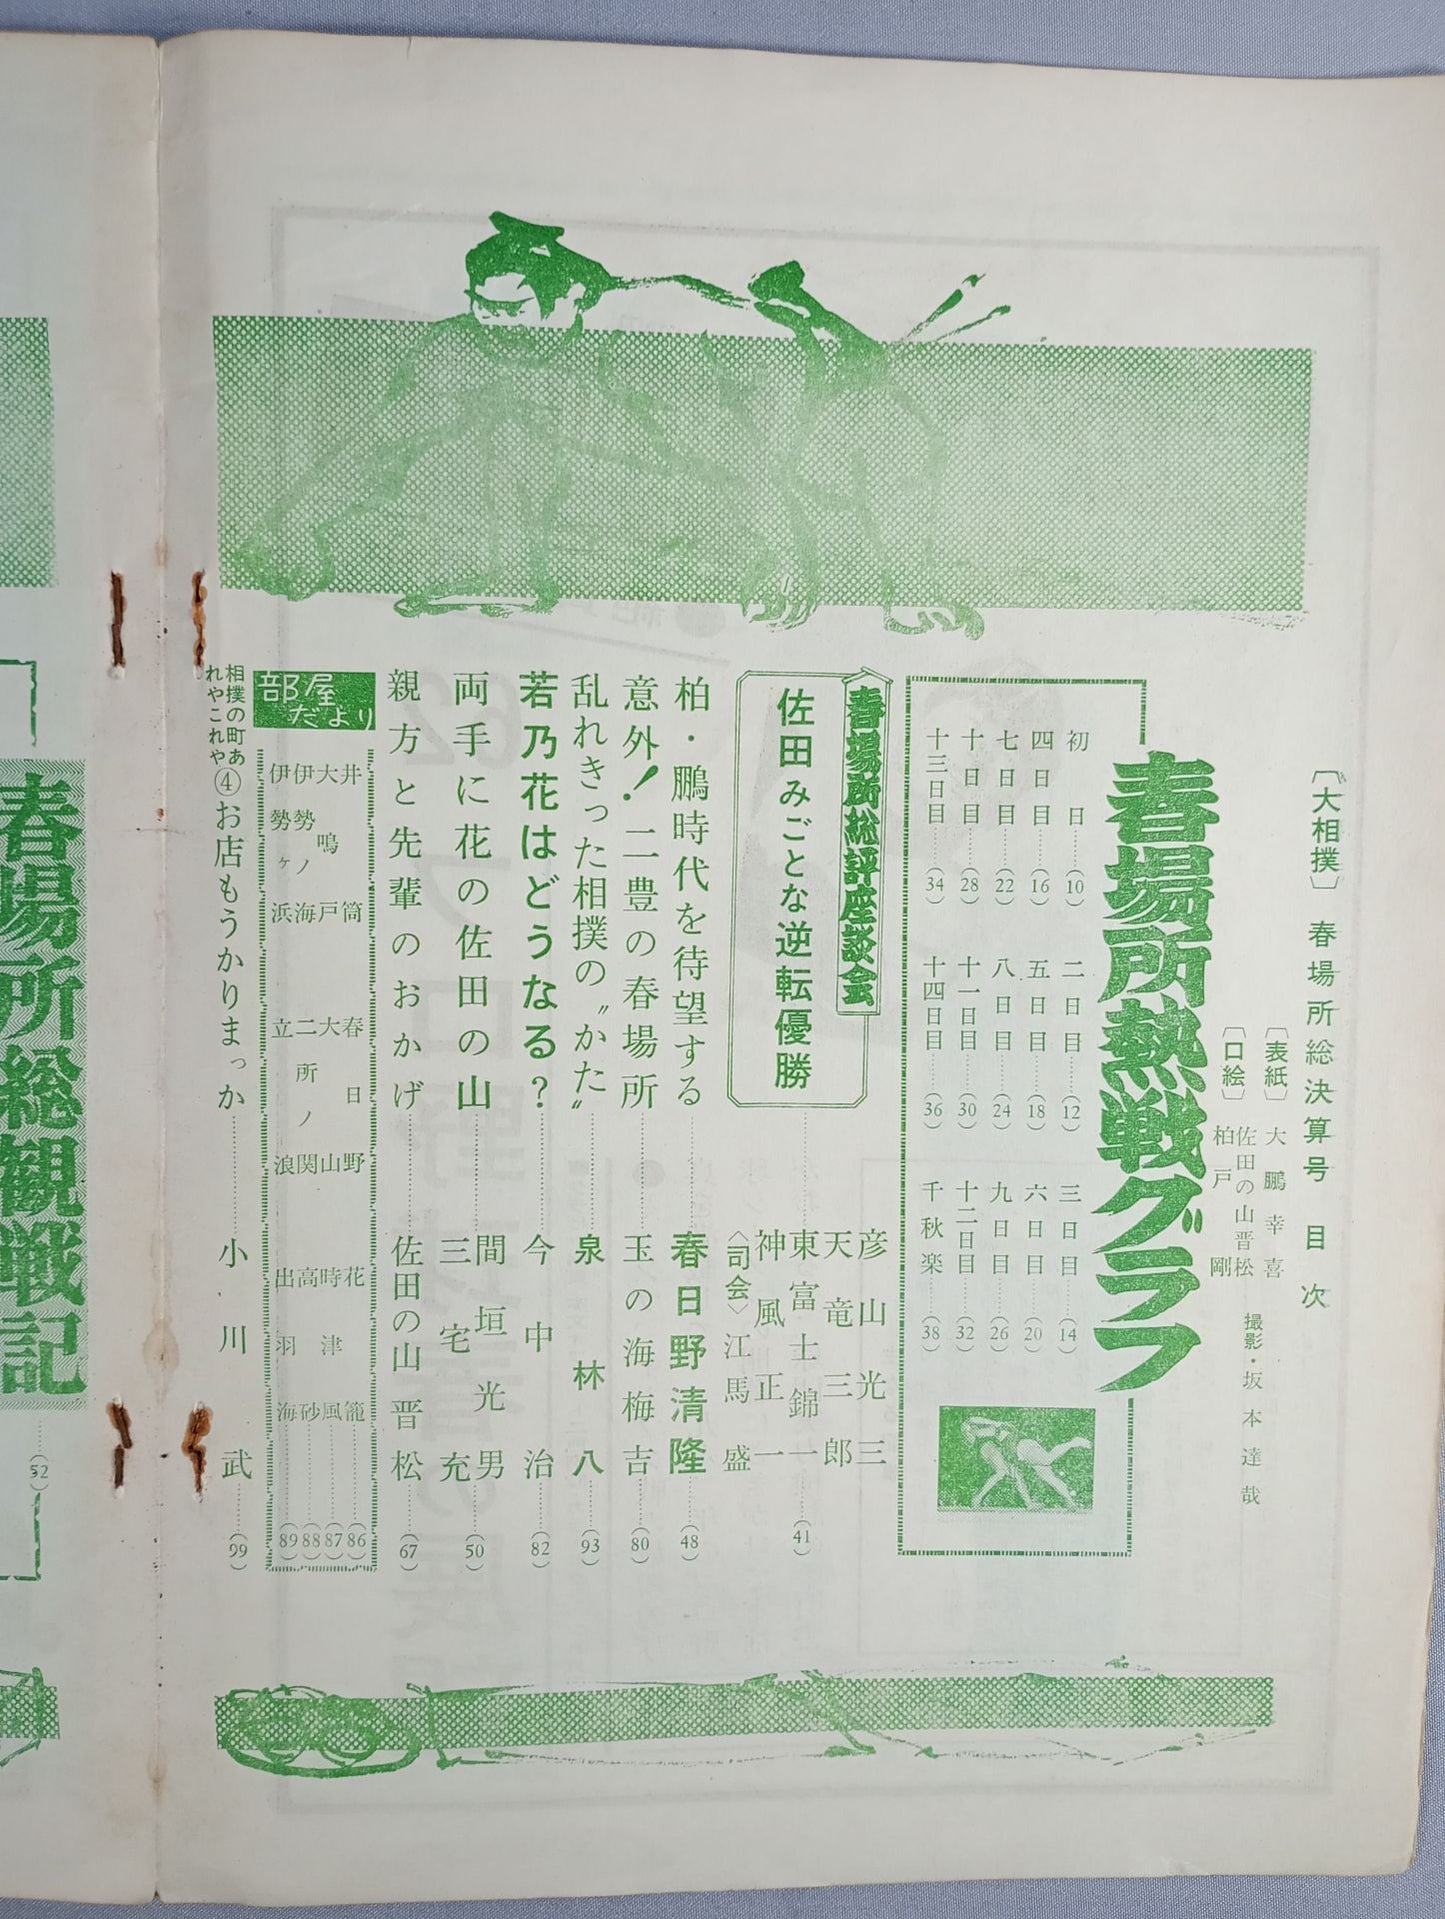 〔大相撲〕 春場所総決算号 目次
〔表紙〕 大鵬幸喜
〔口絵〕 佐田の山晋松
柏戸 剛
撮影・坂本達哉
春場所熱戦グラフ
初日……(10) 二日目……(12) 三日目……(14)
四日目……(16) 五日目……(18) 六日目……(20)
七日目……(22) 八日目……(24) 九日目……(26)
十日目……(28) 十一日目……(30) 十二日目……(32)
十三日目……(34) 十四日目……(36) 千秋楽……(38)
春場所総評座談会
佐田みごとな逆転優勝
彦山光三
天竜三郎
東富士錦一……(41)
神風正一
〈司会〉江馬盛
柏・鵬時代を待望する……春日野清隆……(48)
意外！二豊の春場所……玉の海梅吉……(80)
乱れきった相撲の〝かた〟……泉林八……(93)
若乃花はどうなる？……今中治……(82)
両手に花の佐田の山……間垣光男
三宅充……(50)
親方と先輩のおかげ……佐田の山晋松……(67)
部屋だより
井筒 春日野 花籠……(86)
大鳴戸 大山 時津風……(87)
伊勢ノ海 二所ノ関 高砂……(88)
伊勢ヶ浜 立浪 出羽海……(89)
相撲の町あれやこれや④お店もうかりまっか……小川武……(99)
春場所総観戦記……(52)